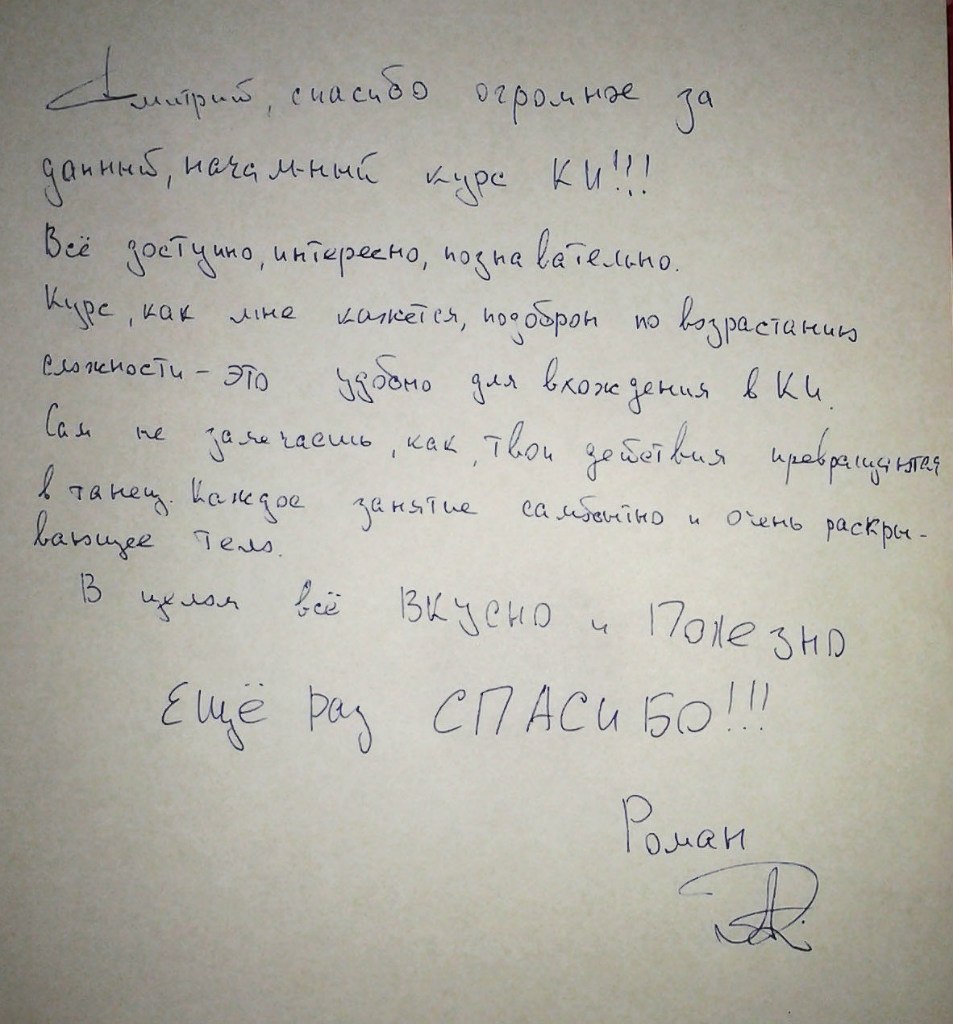 Дмитрий, спасибо огромное за
данный, начальный курс КИ!!!
Всё доступно, интересно, познавательно.
Курс, как мне кажется, подобран по возрастанию
сложности - это удобно для вхождения в КИ.
Сам не замечаешь, как, твои действия превращаются
в танец. Каждое занятие самбытно и очень раскры-
вающее тело.
В целом всё ВКУСНО и ПОЛЕЗНО
ЕЩЁ раз СПАСИБО!!!
Роман